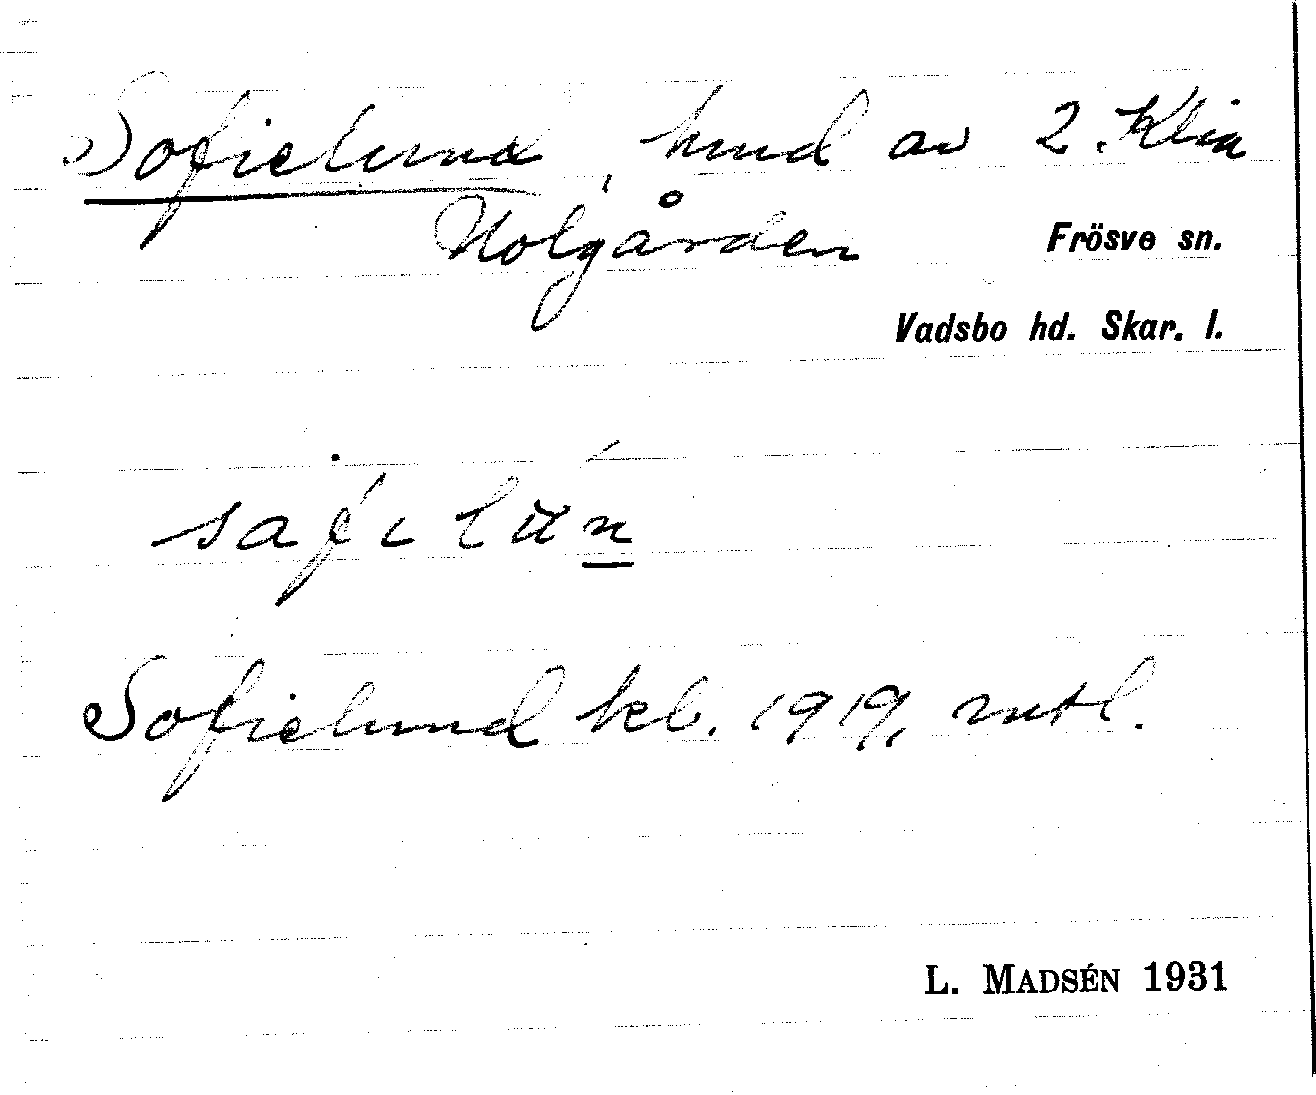 Sofielund, hmd av 2. Klia
Nolgården
Frösve sn.
Vadsbo hd. Skar. l.
safilun
Sofielund kb. 1919, mtl.
L. MADSÉN 1931